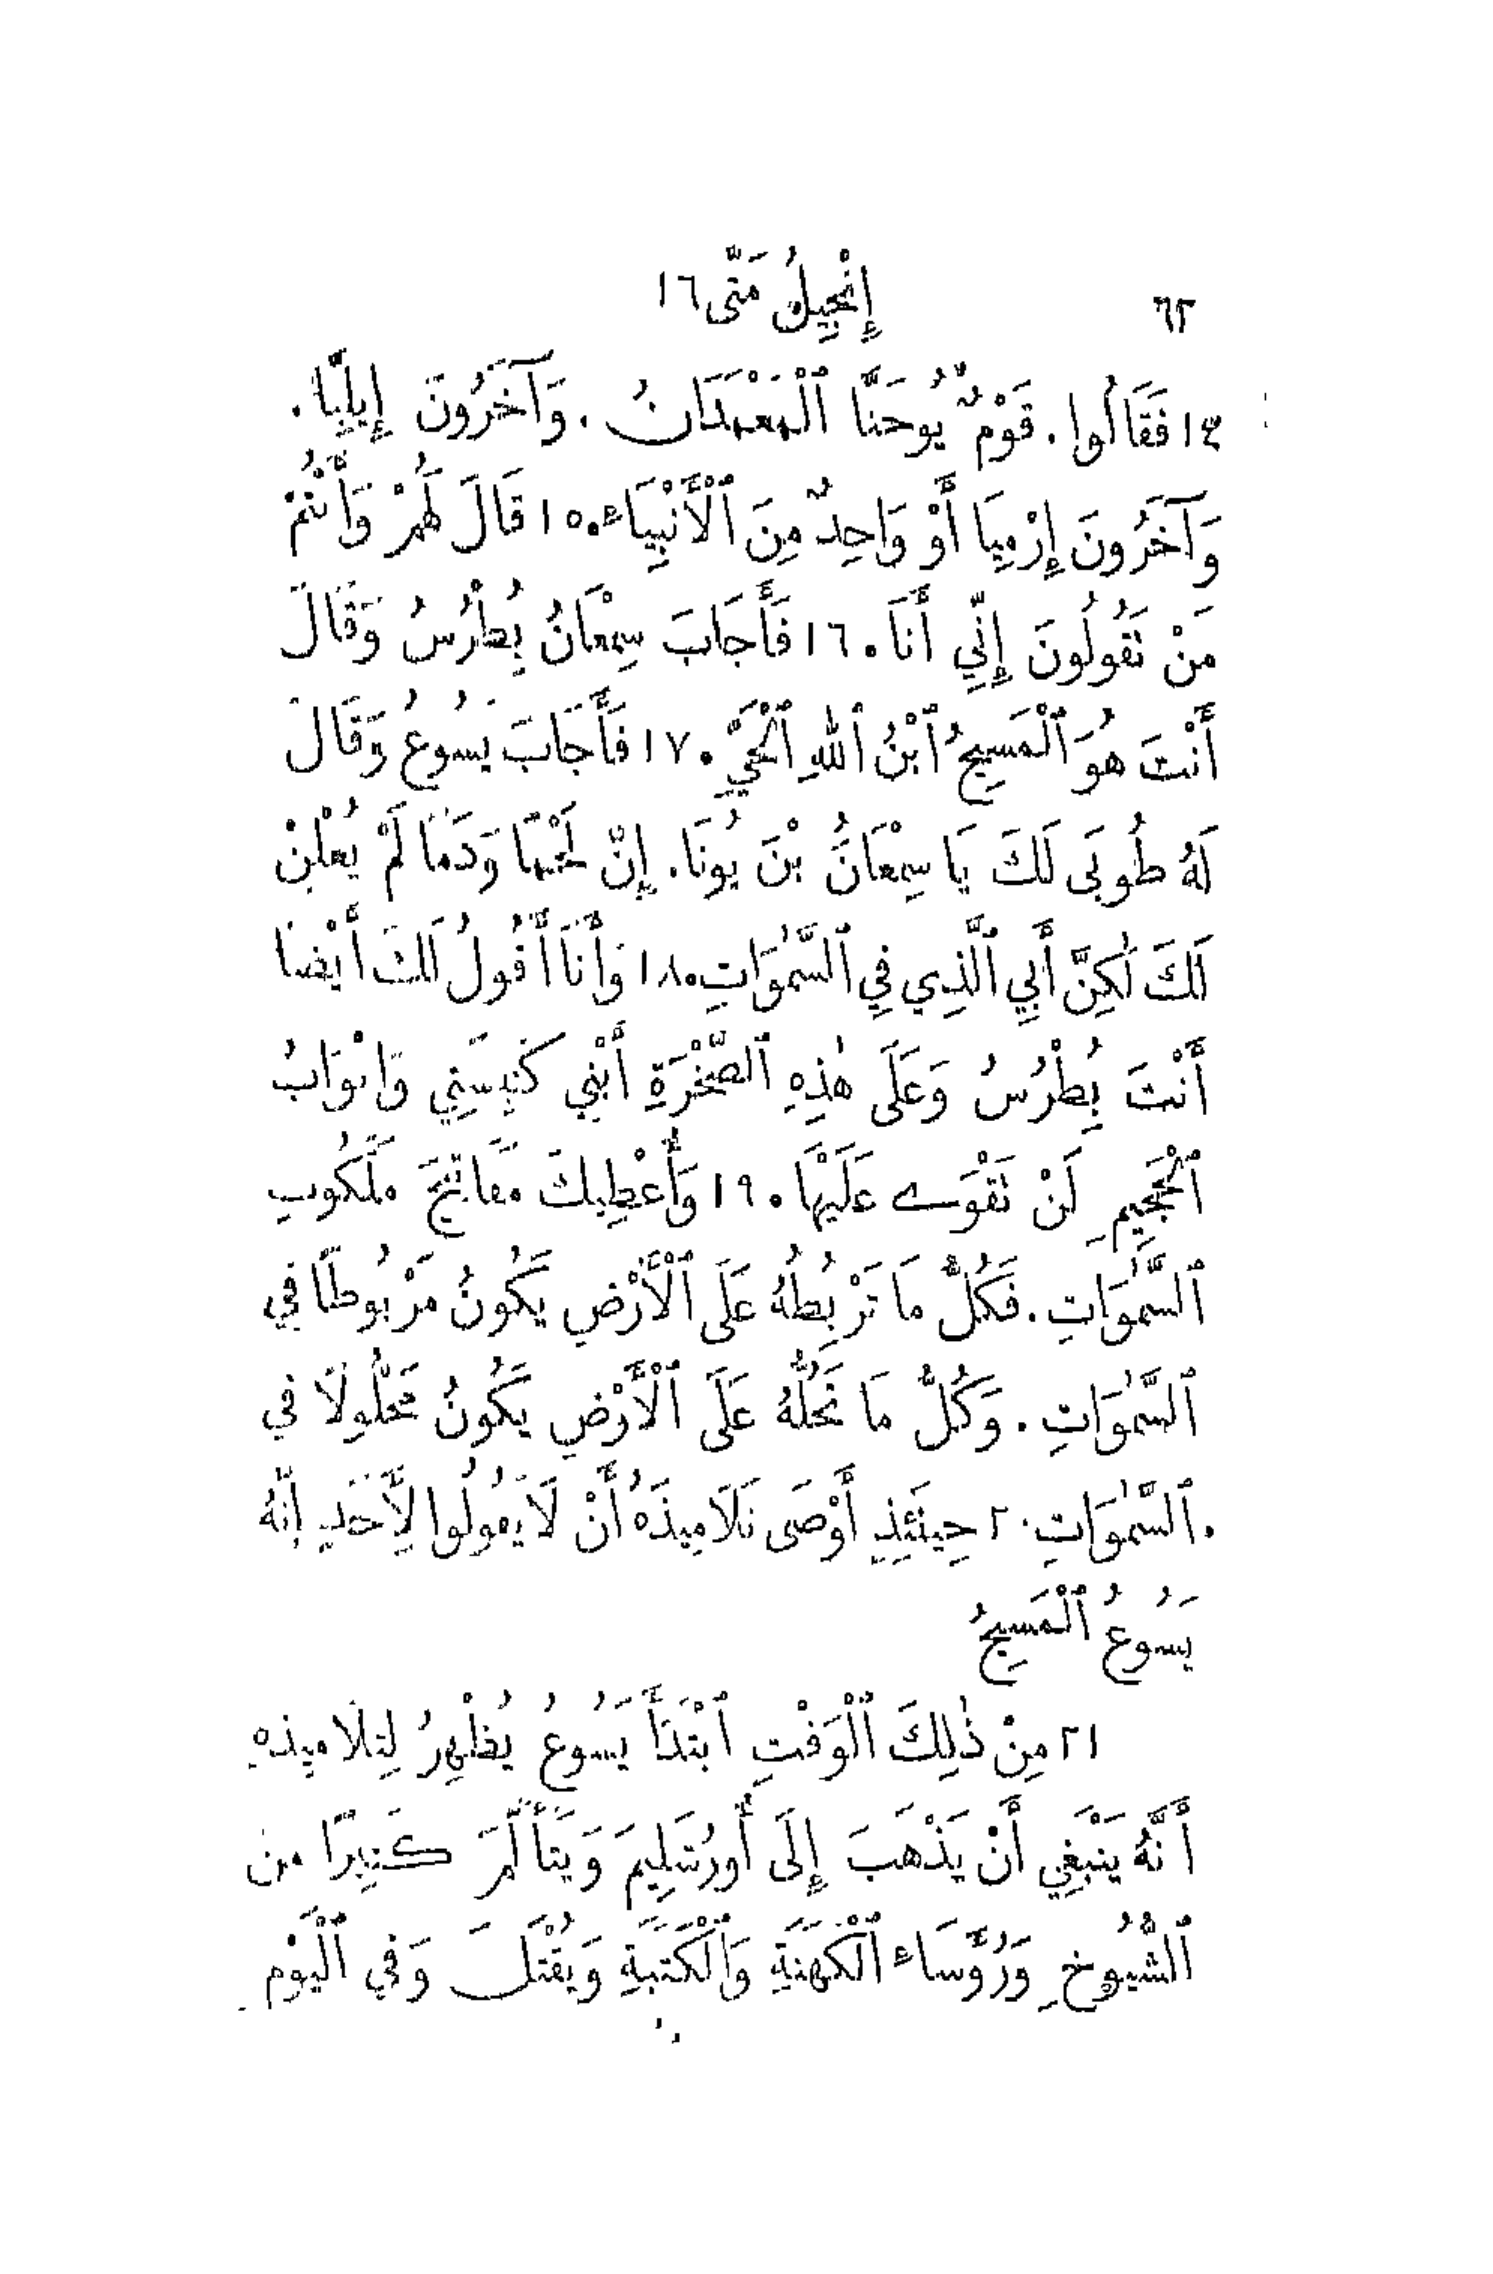 ٦٢ إِنْجِيلُ مَتَّى ١٦
١٤ فَقَالُوا. قَوْمٌ يُوحَنَّا ٱلْمَعْمَدَانُ. وَآخَرُونَ إِيلِيَّا.
وَآخَرُونَ إِرْمِيَا أَوْ وَاحِدٌ مِنَ ٱلْأَنْبِيَاءِ. ١٥ قَالَ لَهُمْ وَأَنْتُمْ
مَنْ تَقُولُونَ إِنِّي أَنَا. ١٦ فَأَجَابَ سِمْعَانُ بُطْرُسُ وَقَالَ
أَنْتَ هُوَ ٱلْمَسِيحُ ٱبْنُ ٱللهِ ٱلْحَيِّ. ١٧ فَأَجَابَ يَسُوعُ وَقَالَ
لَهُ طُوبَى لَكَ يَا سِمْعَانُ بْنَ يُونَا. إِنَّ لَحْمًا وَدَمًا لَمْ يُعْلِنْ
لَكَ لٰكِنَّ أَبِي ٱلَّذِي فِي ٱلسَّمٰوَاتِ. ١٨ وَأَنَا أَقُولُ لَكَ أَيْضًا
أَنْتَ بُطْرُسُ وَعَلَى هٰذِهِ ٱلصَّخْرَةِ أَبْنِي كَنِيسَتِي وَأَبْوَابُ
ٱلْجَحِيمِ لَنْ تَقْوَى عَلَيْهَا. ١٩ وَأُعْطِيكَ مَفَاتِيحَ مَلَكُوتِ
ٱلسَّمٰوَاتِ. فَكُلُّ مَا تَرْبِطُهُ عَلَى ٱلْأَرْضِ يَكُونُ مَرْبُوطًا فِي
ٱلسَّمٰوَاتِ. وَكُلُّ مَا تَحُلُّهُ عَلَى ٱلْأَرْضِ يَكُونُ مَحْلُولًا فِي
ٱلسَّمٰوَاتِ. ٢٠ حِينَئِذٍ أَوْصَى تَلَامِيذَهُ أَنْ لَا يَقُولُوا لِأَحَدٍ إِنَّهُ
يَسُوعُ ٱلْمَسِيحُ
٢١ مِنْ ذٰلِكَ ٱلْوَقْتِ ٱبْتَدَأَ يَسُوعُ يُظْهِرُ لِتَلَامِيذِهِ
أَنَّهُ يَنْبَغِي أَنْ يَذْهَبَ إِلَى أُورُشَلِيمَ وَيَتَأَلَّمَ كَثِيرًا مِنَ
ٱلشُّيُوخِ وَرُؤَسَاءِ ٱلْكَهَنَةِ وَٱلْكَتَبَةِ وَيُقْتَلَ وَفِي ٱلْيَوْمِ